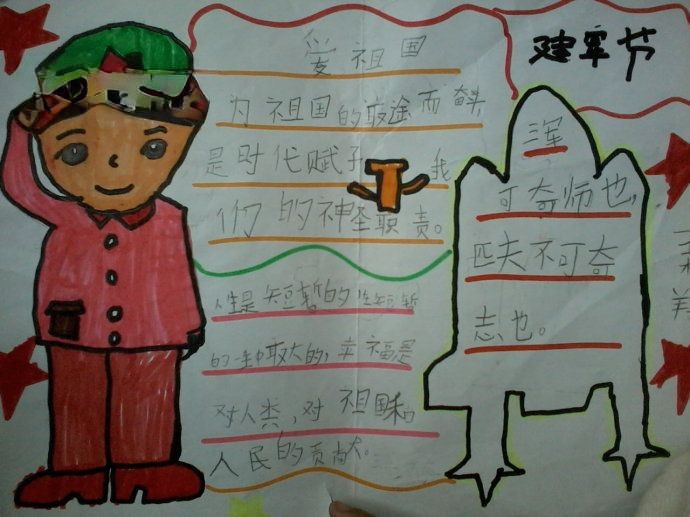 爱祖国
为祖国的前途而奋斗,
是时代赋予 我
们的神圣职责。
人生是短暂的 生短暂
的一生中最大的,幸福是
对人类,对祖国和
人民的贡献。
建军节
三军
可夺师也,
匹夫不可夺
志也。